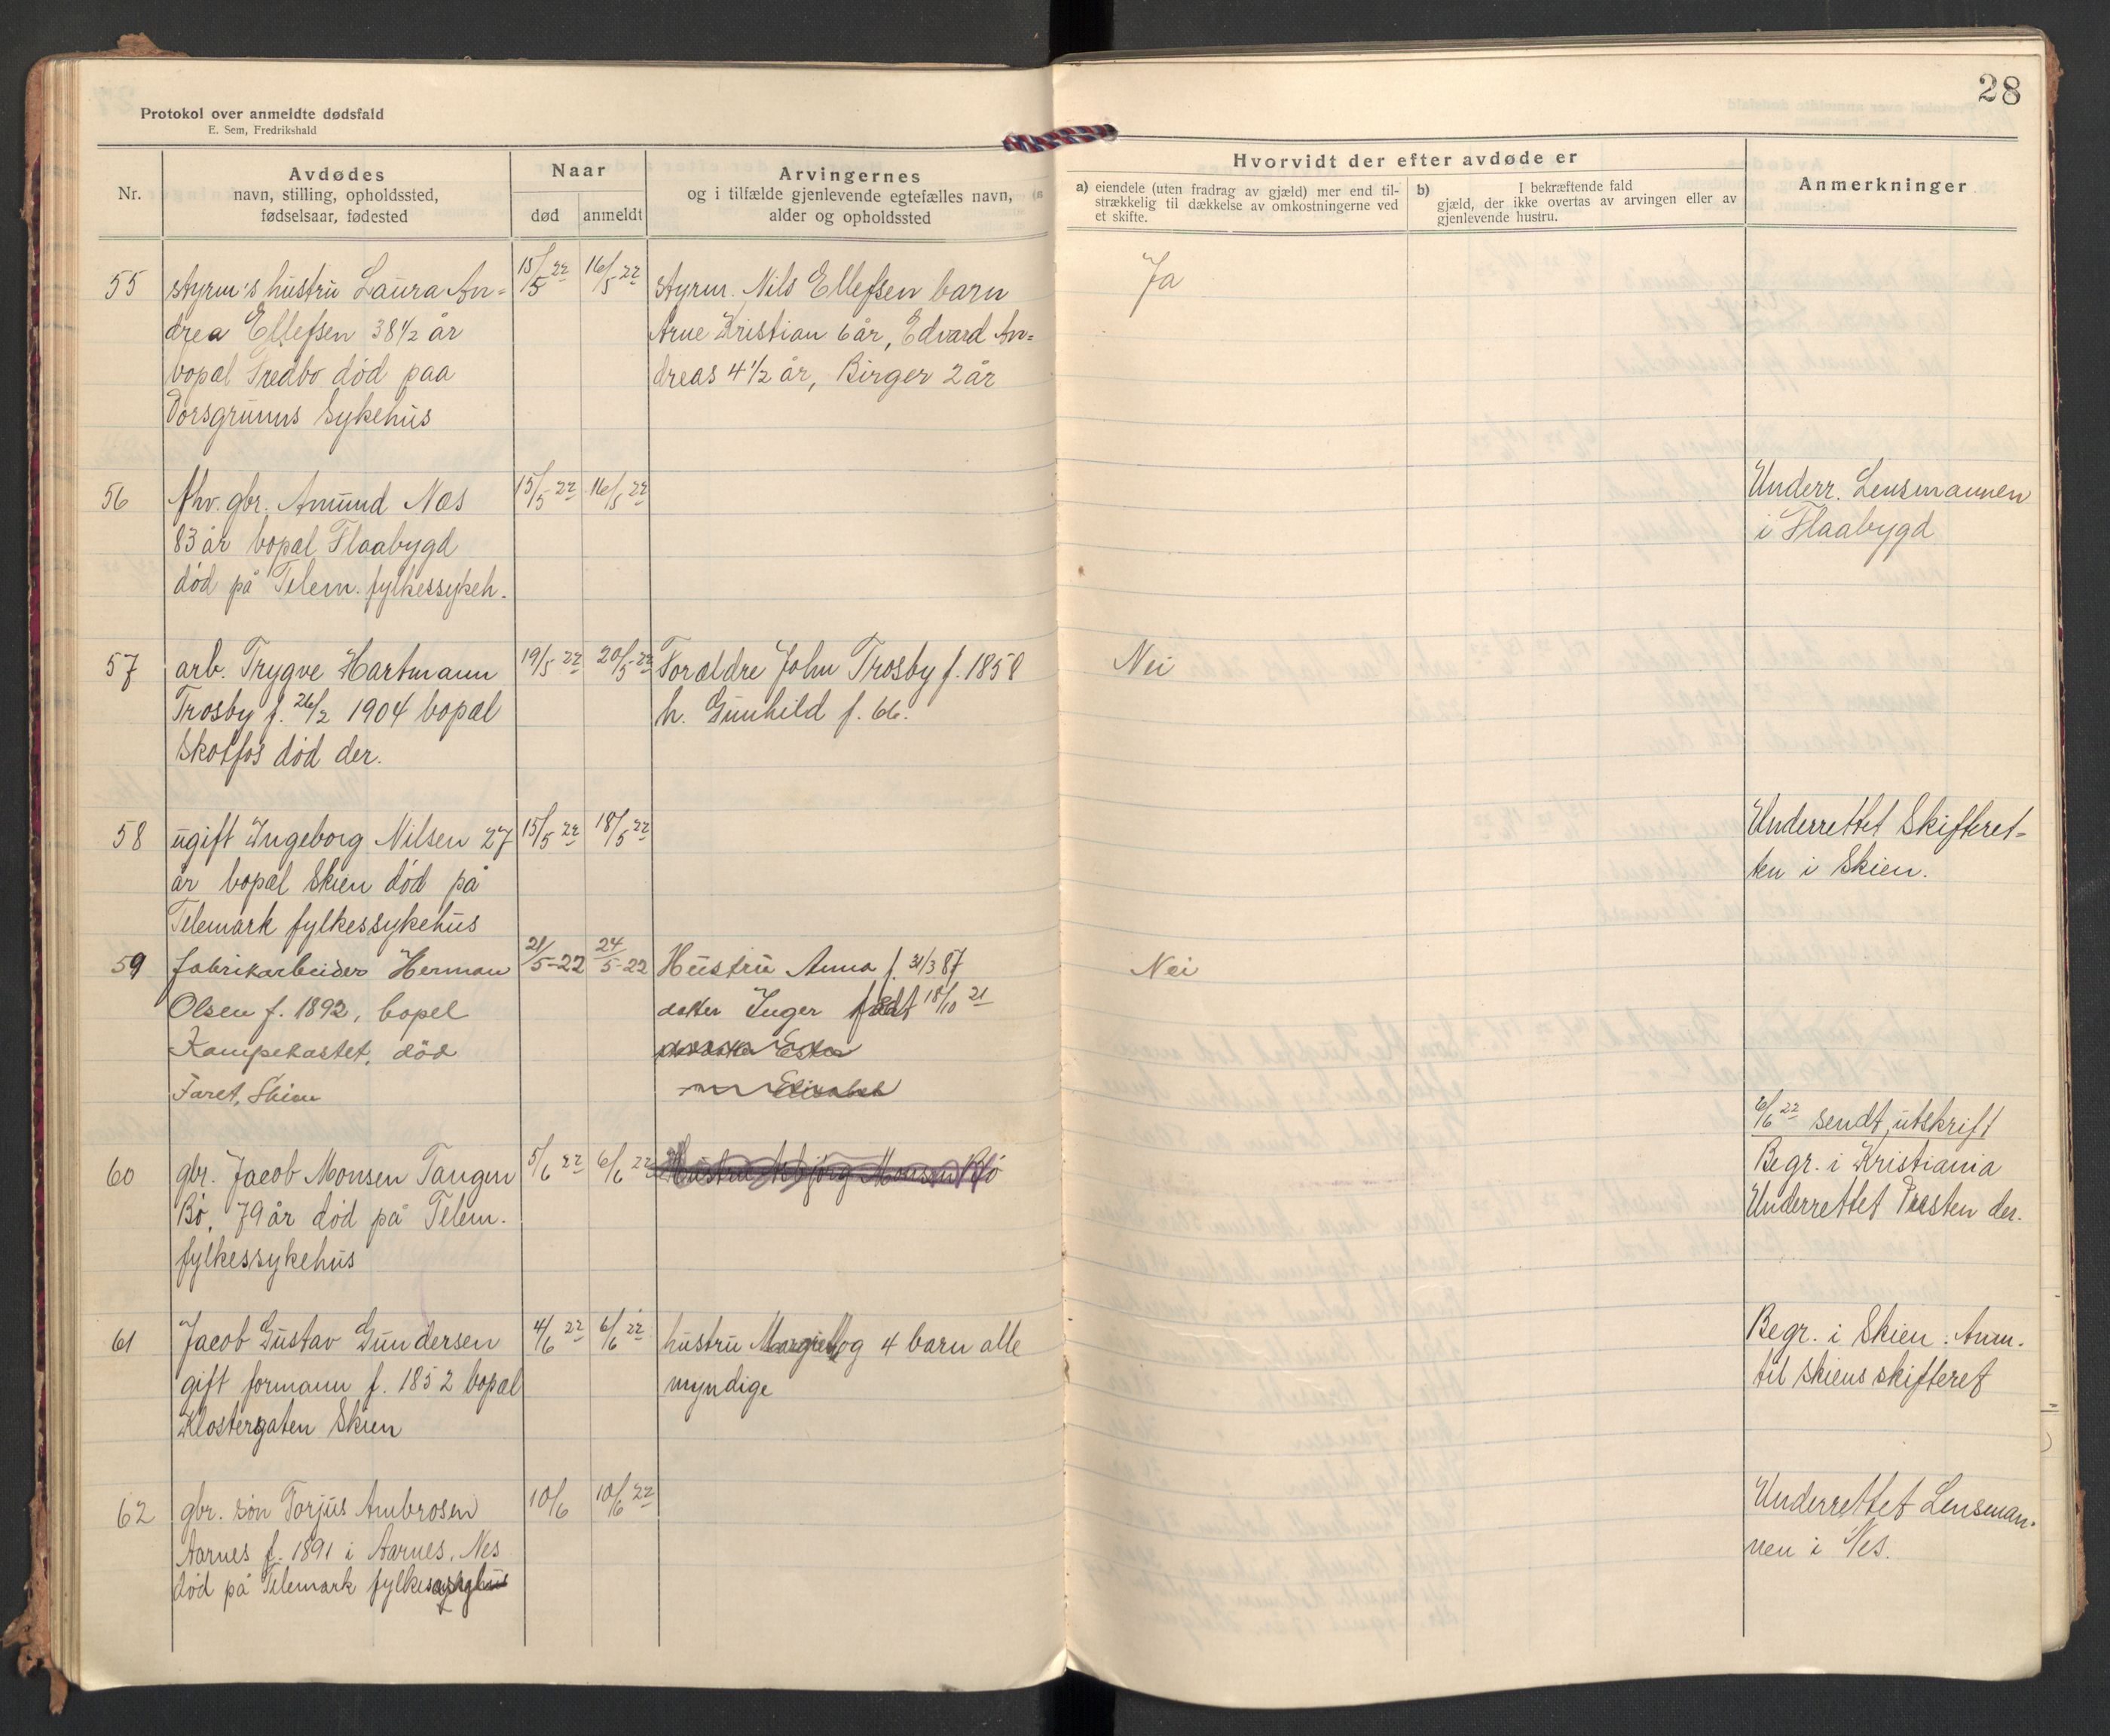 28
Protokol over anmeldte dødsfald
E. Sem, Fredrikshald
Nr.
Avdødes
navn, stilling, opholdssted,
fødselsaar, fødested
Naar
død
anmeldt
Arvingernes
og i tilfælde gjenlevende egtefælles navn,
alder og opholdssted
Hvorvidt der efter avdøde er
a) eiendele (uten fradrag av gjæld) mer end til-
strækkelig til dækkelse av omkostningerne ved
et skifte.
b) I bekræftende fald
gjæld, der ikke overtas av arvingen eller av
gjenlevende hustru.
Anmerkninger
55 styrm's hustru Laura An- 15/5 22 16/5 22 styrm. Nils Ellefsen barn Ja
drea Ellefsen 38 1/2 år Arne Kristian 6 år, Edvard An-
bopæl Tredbo död paa dreas 4 1/2 år, Birger 2 år
Porsgrunns Sykehus
56 fhv. gbr. Amund Næs 15/5 22 16/5 22 Underr. Lensmannen
83 år bopæl Flaabygd i Flaabygd
død på Telem. fylkessykeh.
57 arb. Trygve Hartmann 19/5 22 20/5 22 Foræeldre John Trosby f. 1858 Nei
Trosby f. 26/2 1904 bopæl h. Gunhild f. 66.
Skotfos død der.
58 ugift Ingeborg Nilsen 27 15/5 22 18/5 22 Underrettet Skifteret-
år bopæl Skien død på ten i Skien.
Telemark fylkessykehus
59 fabrikarbeider Herman 21/5-22 24/5-22 Hustru Anna f. 31/3 87 Nei
Olsen f. 1892, bopel datter Inger født 18/10 21
Kampekastet, död
Faret, Skien Elisabeth
6/6 22 sendt utskrift
60 gbr. Jacob Monsen Tangen 5/6 22 6/6 22 Hustru Asbjørg Monsen Bö Begr. i Kristiania
Bö, 79 år død på Telem. Underrettet Presten der.
fylkessykehus
61 Jacob Gustav Gundersen 4/6 22 6/6 22 hustru og 4 barn alle Begr. i Skien. Anm.
gift formann f. 1852 bopæl myndige til Skiens skifteret
Klostergaten Skien
62 gbr. søn Torjus Ambrosen 10/6 10/6 22 Underrettet Lensman-
Aarnes f. 1891 i Aarnes, Nes nen i Nes.
død på Telemark fylkessykehus